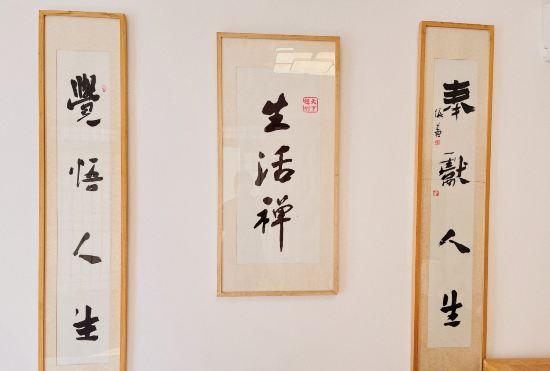 覺悟人生
生活禅
奉獻人生